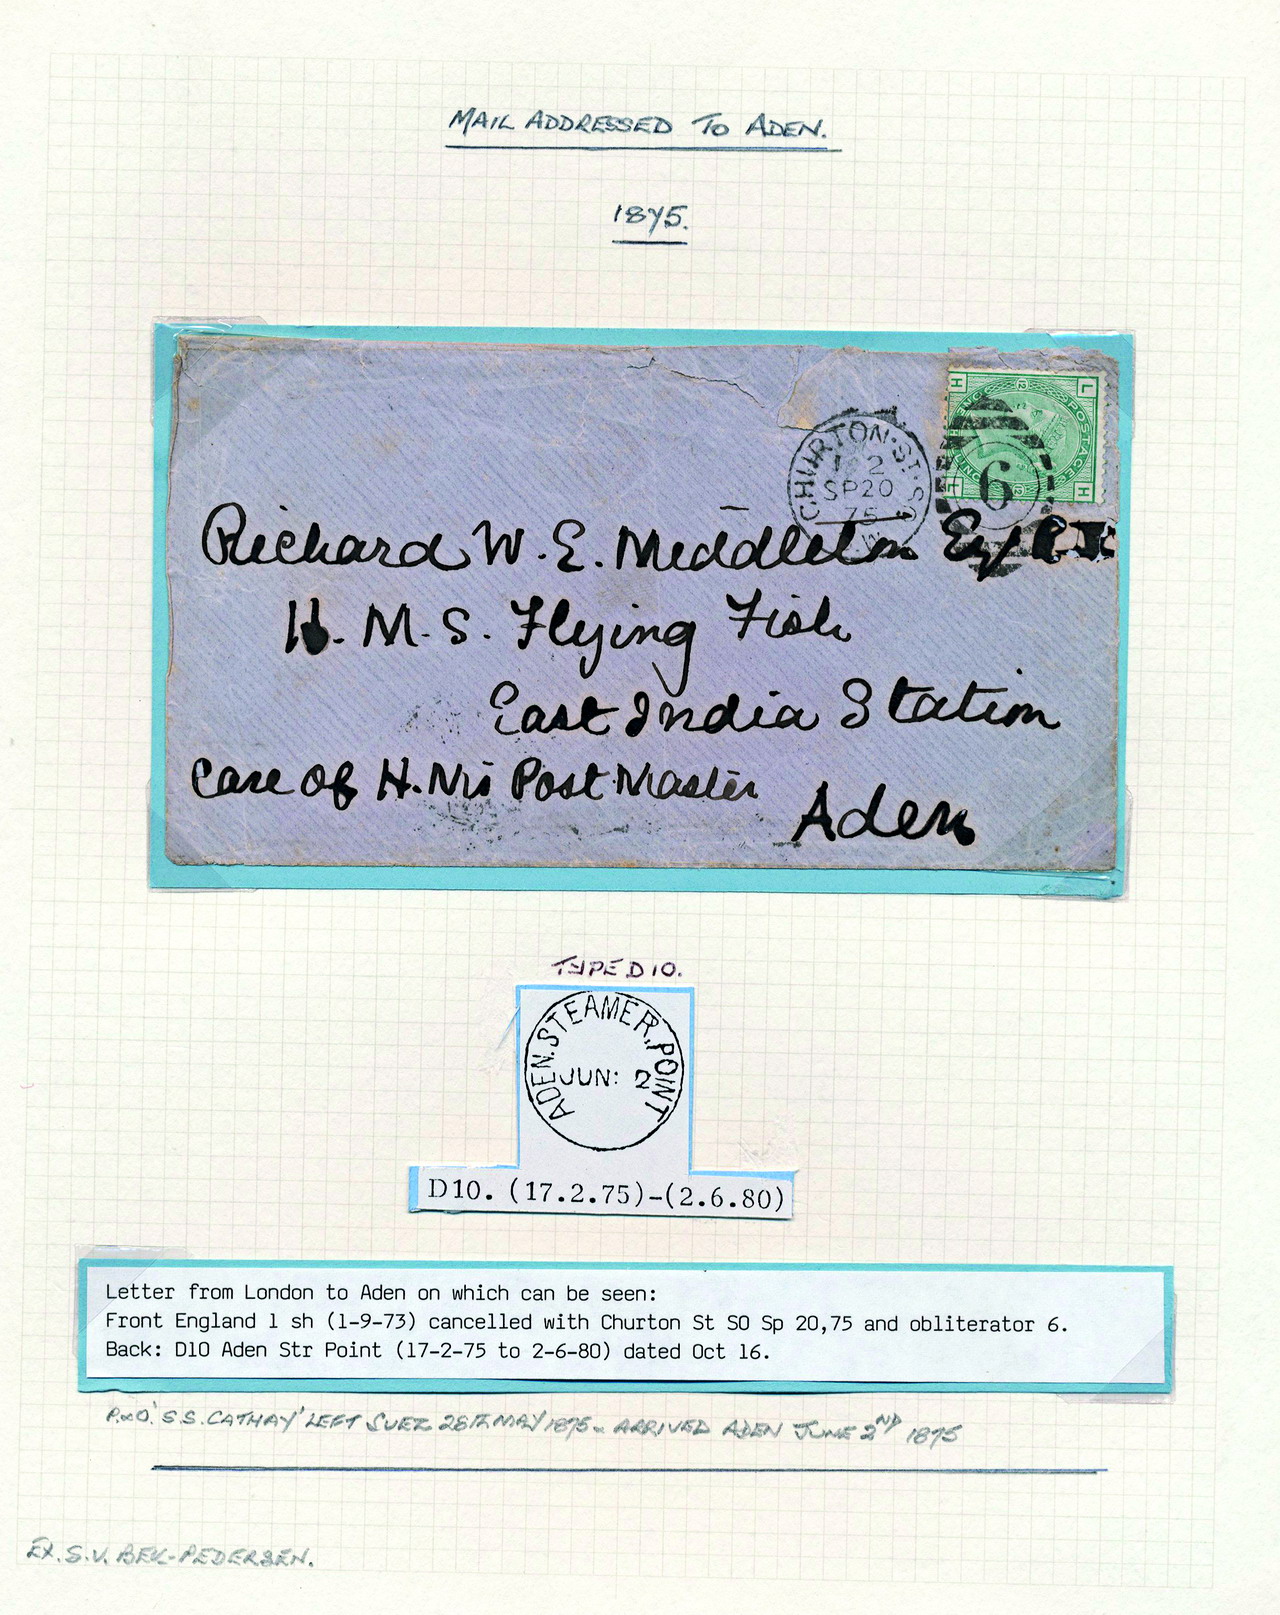 MAIL ADDRESSED TO ADEN.
1875.
CHURTON-ST. S.O
2
SP20
75
W
POSTAGE
H L
L H
12
12
6
Richard W. E. Middleton Esq R.N.
H. M. S. Flying Fish
East India Station
Care of H. Ms Post Master
Aden
TYPE D10.
ADEN. STEAMER. POINT
JUN: 2
D10. (17.2.75)-(2.6.80)
Letter from London to Aden on which can be seen:
Front England 1 sh (1-9-73) cancelled with Churton St SO Sp 20,75 and obliterator 6.
Back: D10 Aden Str Point (17-2-75 to 2-6-80) dated Oct 16.
P&O. 'S.S. CATHAY' LEFT SUEZ 28TH MAY 1875 - ARRIVED ADEN JUNE 2ND 1875
EX. S.V. BEK-PEDERSEN.